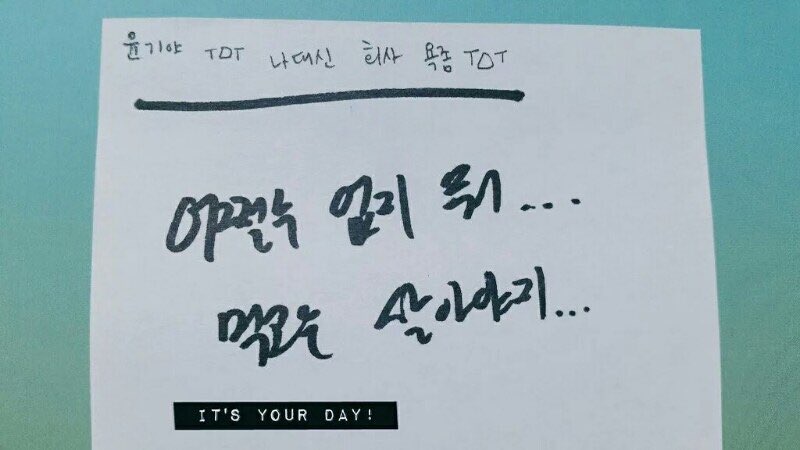 윤기야 TㅁT 나대신 회사 욕좀 T△T
어쩔수 없지 뭐...
먹고는 살아야지...
IT'S YOUR DAY!